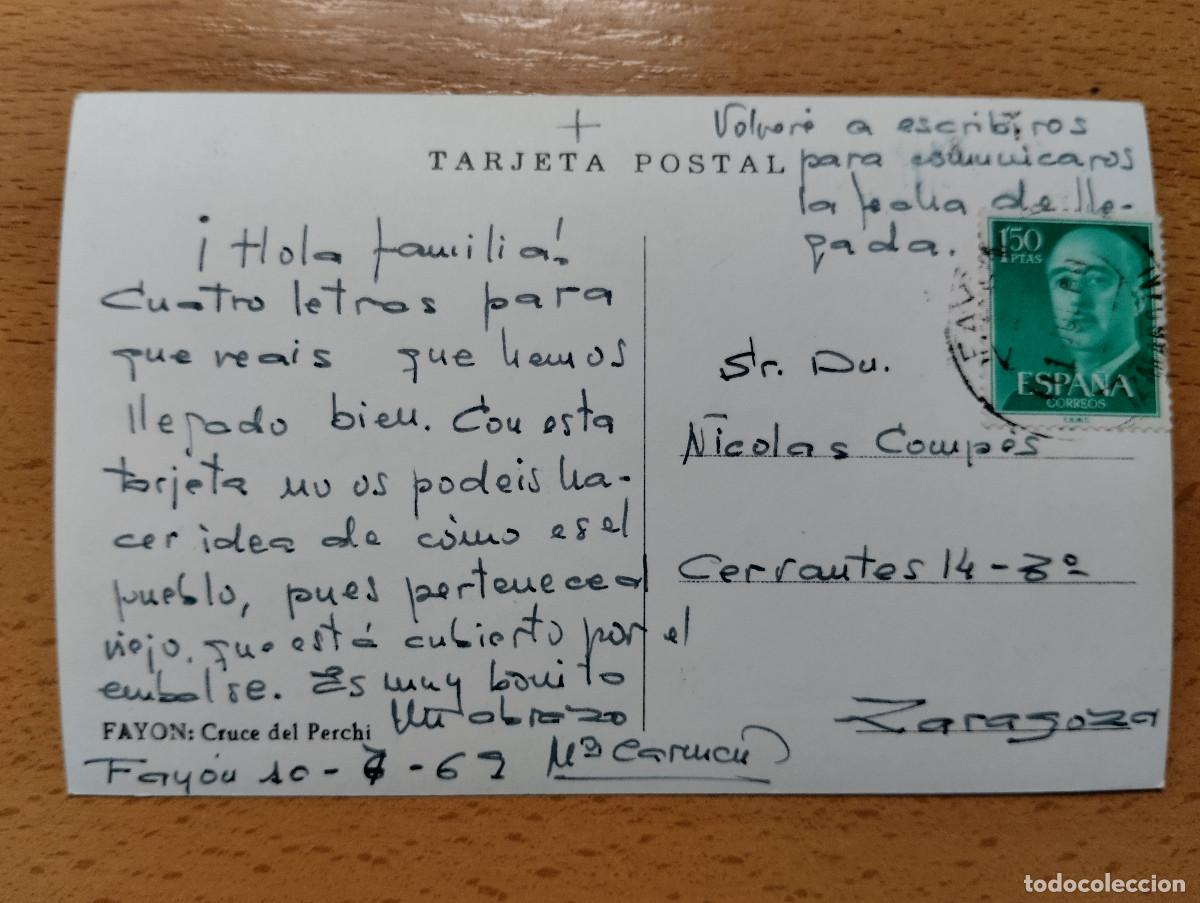 TARJETA POSTAL
¡Hola familia!
Cuatro letras para
que veais que hemos
llegado bien. Con esta
tarjeta no os podeis ha-
cer idea de cómo es el
pueblo, pues pertenece al
viejo, que está cubierto por el
embalse. Es muy bonito
Un abrazo
Mª Carmen
FAYON: Cruce del Perchi
Fayón 10-7-69
Volveré a escribiros
para comunicaros
la fecha de lle-
gada.
1'50
PTAS
ESPAÑA
CORREOS
Sr. Dn.
Nicolas Compés
Cervantes 14-3º
Zaragoza
todocoleccion